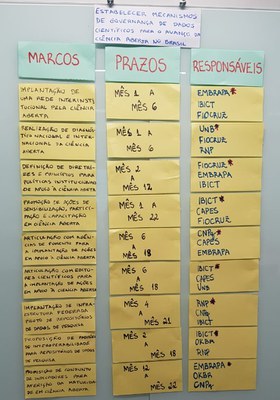 ESTABELECER MECANISMOS
DE GOVERNANÇA DE DADOS
CIENTÍFICOS PARA O AVANÇO DA
CIÊNCIA ABERTA NO BRASIL
MARCOS
PRAZOS
RESPONSÁVEIS
IMPLANTAÇÃO DE
UMA REDE INTERINSTI
TUCIONAL PELA CIÊNCIA
ABERTA
MÊS 1 A
MÊS 6
EMBRAPA*
IBICT
FIOCRUZ
REALIZAÇÃO DE DIAGNÓS
TICO NACIONAL E INTER-
NACIONAL DA CIÊNCIA
ABERTA
MÊS 1 A
MÊS 6
UNB*
FIOCRUZ
RNP
DEFINIÇÃO DE DIRETRI-
ZES E PRINCÍPIOS PARA
POLÍTICAS INSTITUCIONAIS
DE APOIO À CIÊNCIA ABERTA
MÊS 2
A
MÊS 12
FIOCRUZ*
EMBRAPA
IBICT
PROMOÇÃO DE AÇÕES DE
SENSIBILIZAÇÃO, PARTICI-
PAÇÃO E CAPACITAÇÃO
EM CIÊNCIA ABERTA
MÊS 1 A
MÊS 22
IBICT*
CAPES
FIOCRUZ
ARTICULAÇÃO COM AGÊN-
CIAS DE FOMENTO PARA
A IMPLANTAÇÃO DE AÇÕES
DE APOIO À CIÊNCIA ABERTA
MÊS 6
A
MÊS 18
CNPq*
CAPES
EMBRAPA
ARTICULAÇÃO COM EDITO-
RES CIENTÍFICOS PARA
A IMPLANTAÇÃO DE AÇÕES
EM APOIO À CIÊNCIA ABERTA
MÊS 6
A
MÊS 18
IBICT*
CAPES
UNB
IMPLANTAÇÃO DE INFRAES-
TRUTURA FEDERADA
PILOTO DE REPOSITÓRIOS
DE DADOS DE PESQUISA
MÊS 4
A
MÊS 21
RNP*
CNPq
IBICT
PROPOSIÇÃO DE PADRÕES
DE INTEROPERABILIDADE
PARA REPOSITÓRIOS DE DADOS
DE PESQUISA
MÊS 2
A
MÊS 18
IBICT*
OKBR
RNP
PROPOSIÇÃO DE CONJUNTO
DE INDICADORES PARA
AFERIÇÃO DA MATURIDA-
DE EM CIÊNCIA ABERTA
MÊS 12
A
MÊS 22
EMBRAPA*
OKBR
CNPq